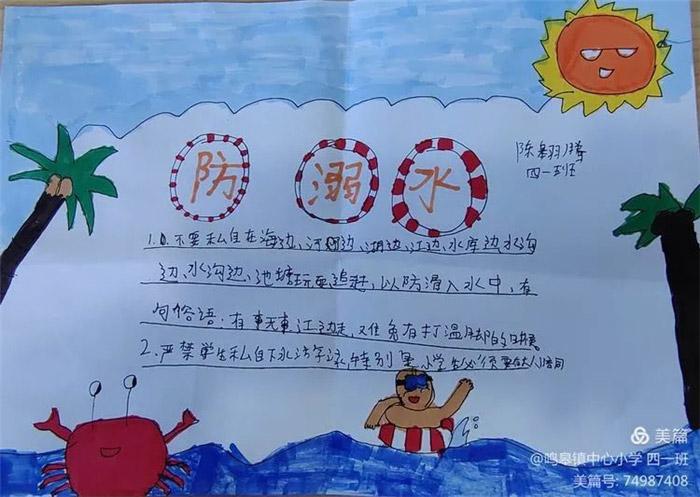 防 溺 水
陈翱腾
四一班
1.不要私自在海边、河边、湖边、江边、水库边、水沟
边、水沟边、池塘玩耍追赶,以防滑入水中,有
句俗语:有事无事江边走,难免有打湿脚的时候
2.严禁学生私自下水法学泳,特别是小学生必须要大人陪同
美篇
@鸣皋镇中心小学 四一班
美篇号: 74987408